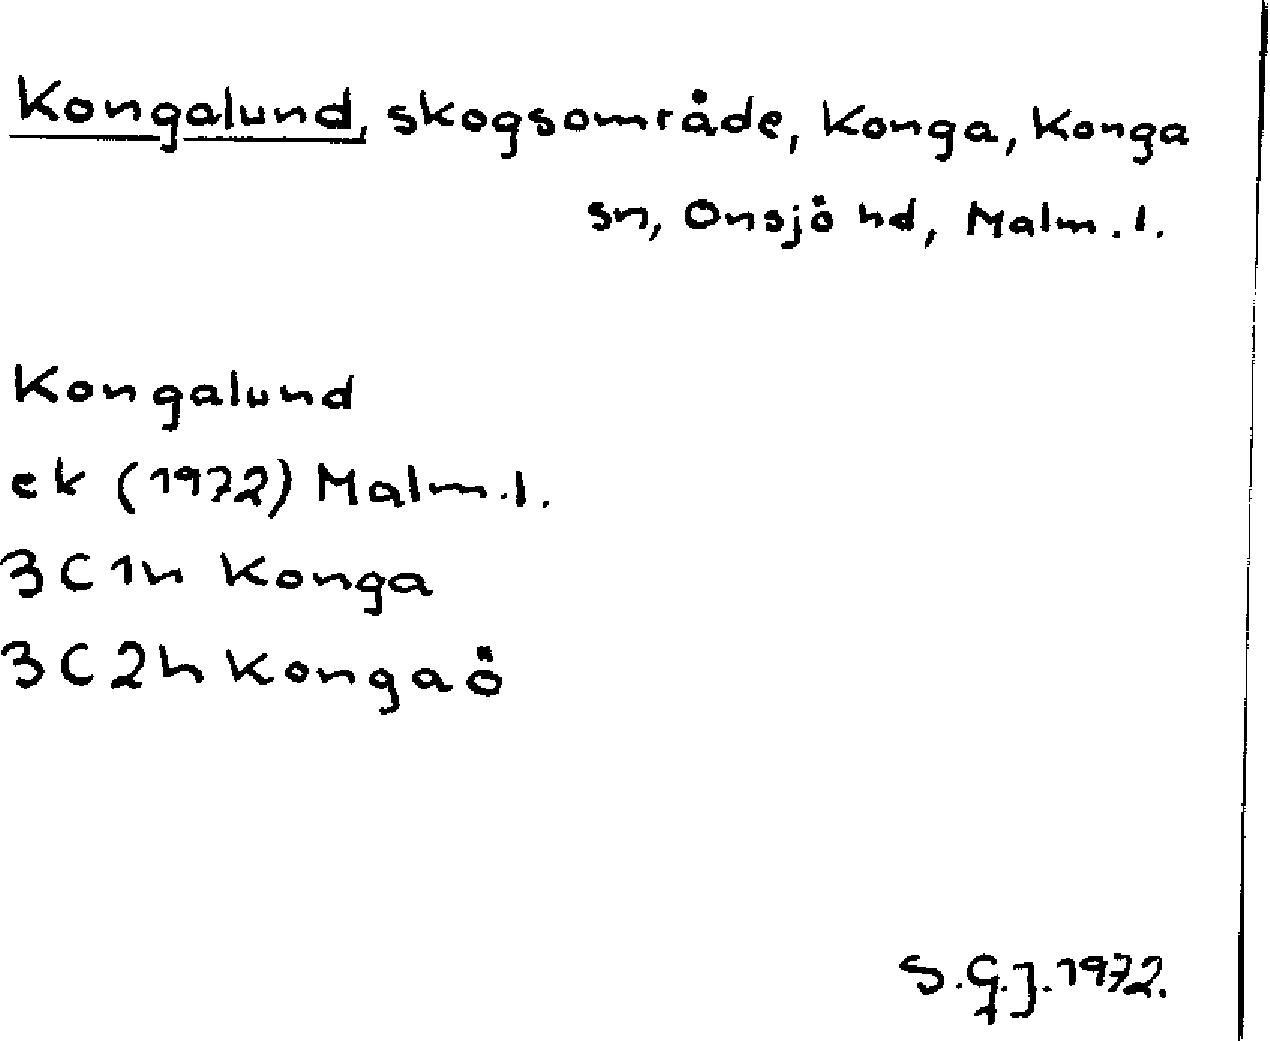 Kongalund, skogsområde, Konga, Konga
sn, Onsjö hd, Malm.l.
Kongalund
ek (1972) Malm.l.
3C1h Konga
3C2h Kongaö
S.G.J.1972.